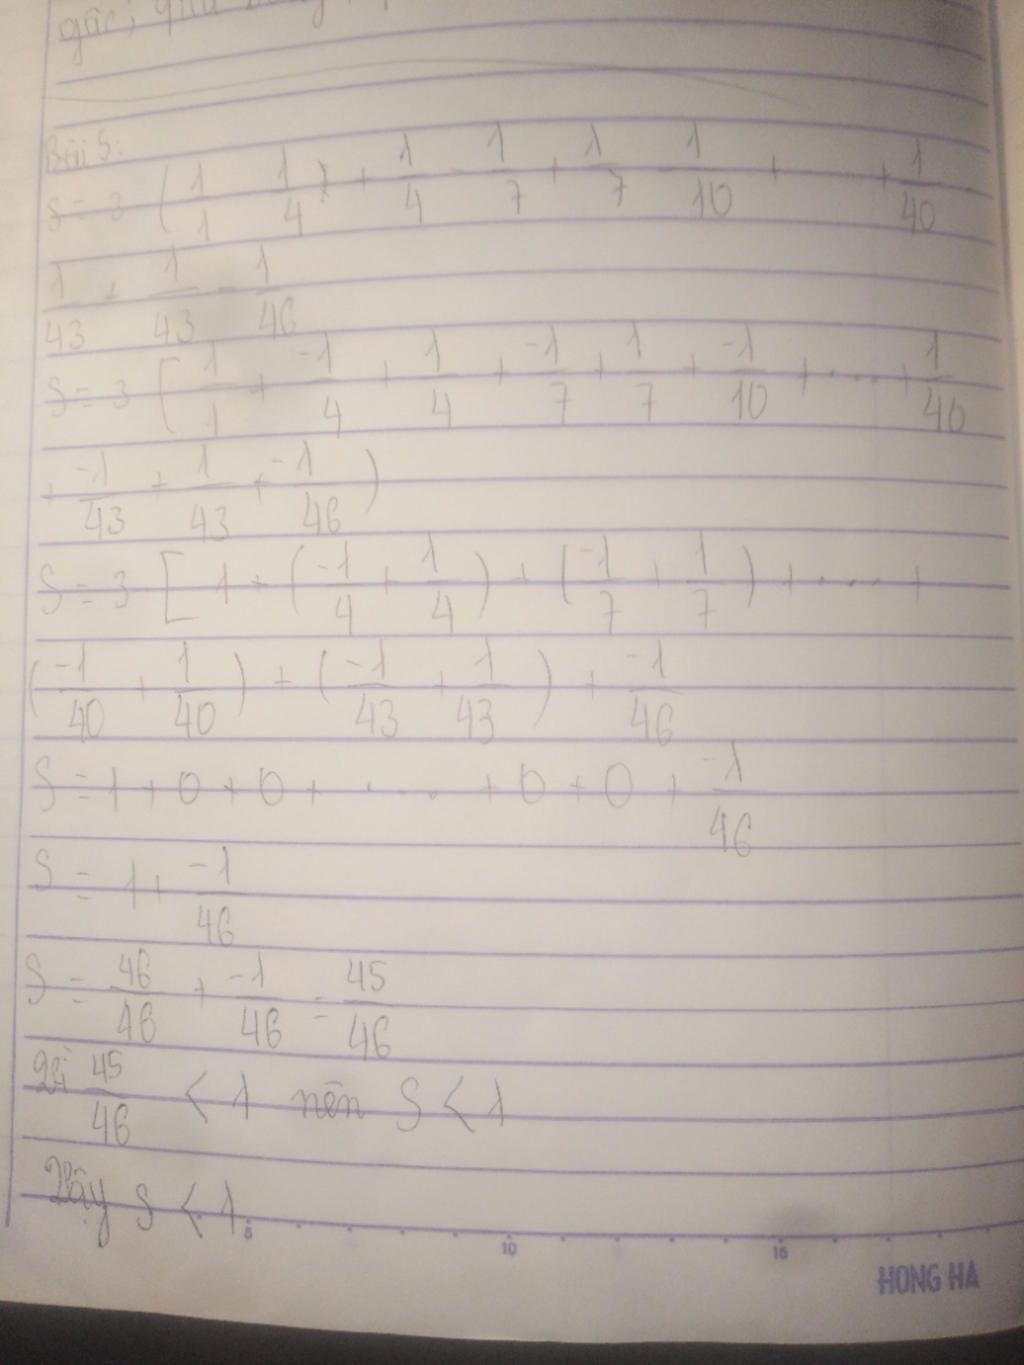 gốc,
Bài 5:
S = 3 ( 1/1 - 1/4 ) + 1/4 - 1/7 + 1/7 - 1/10 + + 1/40
1/43 + 1/43 - 1/46
S = 3 [ 1/1 + -1/4 + 1/4 + -1/7 + 1/7 + -1/10 + .... + 1/40
+ -1/43 + 1/43 + -1/46 )
S = 3 . [ 1 + ( -1/4 + 1/4 ) + ( -1/7 + 1/7 ) + .... +
( -1/40 + 1/40 ) + ( -1/43 + 1/43 ) + -1/46
S = 1 + 0 + 0 + .... + 0 + 0 + -1/46
S = 1 + -1/46
S = 46/46 + -1/46 = 45/46
Vì 45/46 < 1 nên S < 1
Vậy S < 1
5 10 15
HONG HA